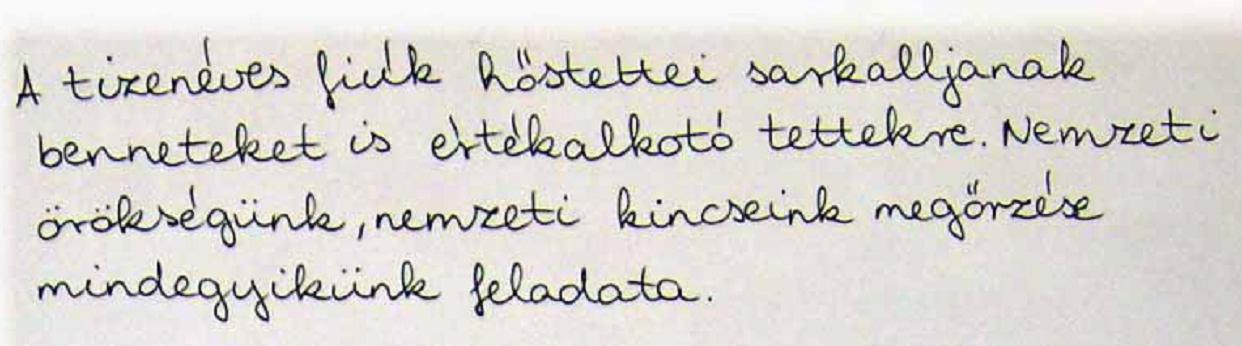 A tizenéves fiúk hőstettei sarkalljanak
benneteket is értékalkotó tettekre. Nemzeti
örökségünk, nemzeti kincseink megőrzése
mindegyikünk feladata.